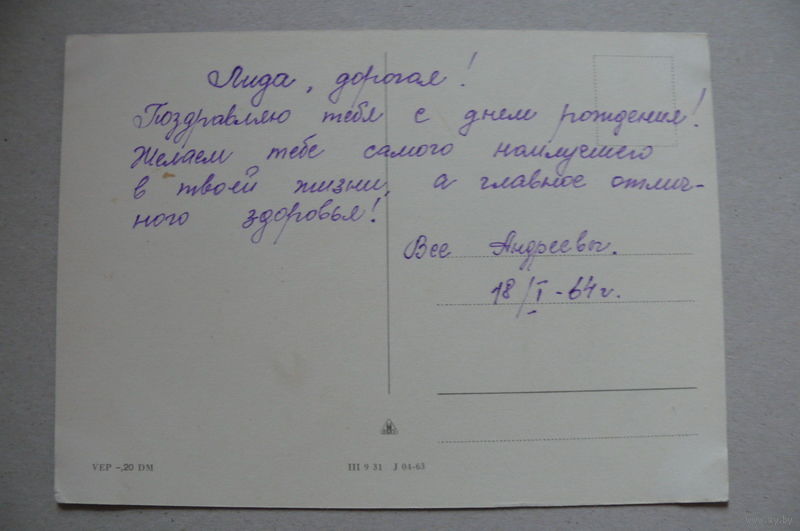 Лида, дорогая!
Поздравляю тебя с днем рождения!
Желаем тебе самого наилучшего
в твоей жизни, а главное отлич-
ного здоровья!
Все Андреевы.
18/I-64г.
VEP -,20 DM
III 9 31 J 04-63
www.ay.by